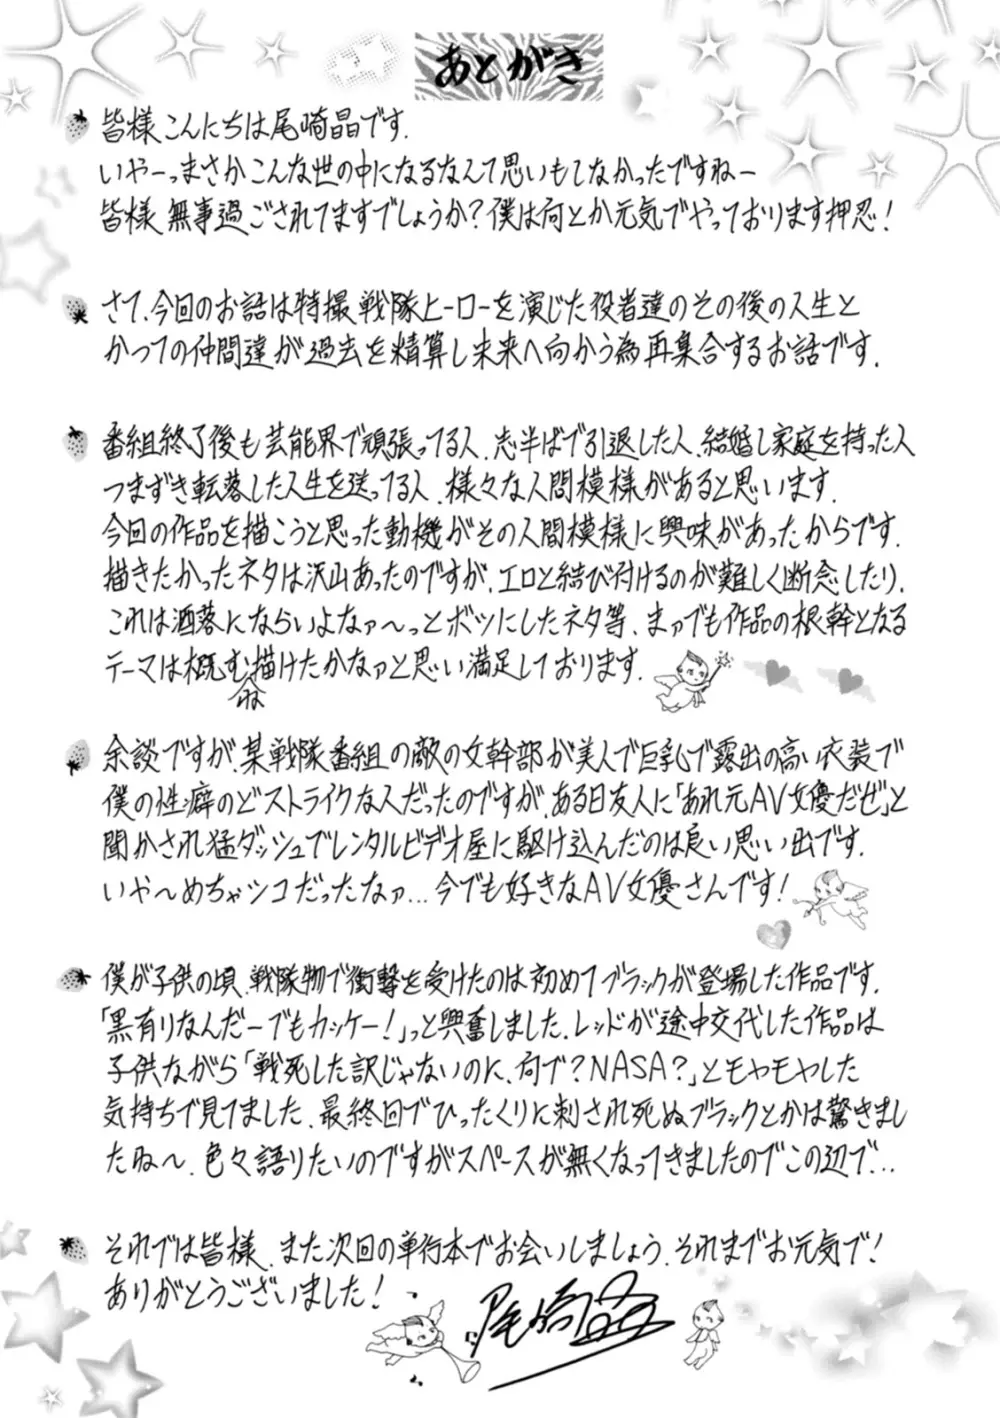 あとがき
皆様こんにちは尾崎晶です.
いやーっまさかこんな世の中になるなんて思いもしなかったですねー
皆様 無事過ごされてますでしょうか?僕は何とか元気でやっております押忍!
さて、今回のお話は特撮戦隊ヒーローを演じた役者達のその後の人生と
かつての仲間達が過去を精算し未来へ向かう為再集合するお話です.
番組終了後も芸能界で頑張ってる人、志半ばで引退した人、結婚し家庭を持った人
つまずき転落した人生を送ってる人、様々な人間模様があると思います.
今回の作品を描こうと思った動機がその人間模様に興味があったからです.
描きたかったネタは沢山あったのですが、エロと結び付けるのが難しく断念したり、
これは洒落にならいよなァ〜っとボツにしたネタ等、まァでも作品の根幹となる
テーマは概む描けたかなァと思い満足しております.
ね
余談ですが、某戦隊番組の敵の女幹部が美人で巨乳で露出の高い衣装で
僕の性癖のどストライクな人だったのですが、ある日友人に「あれ元AV女優だぜ」と
聞かされ猛ダッシュでレンタルビデオ屋に駆け込んだのは良い思い出です.
いや〜めちゃシコだったなァ...今でも好きなAV女優さんです!
僕が子供の頃、戦隊物で衝撃を受けたのは初めてブラックが登場した作品です.
「黒有りなんだーでもカッケー!」っと興奮しました、レッドが途中交代した作品は
子供ながら「戦死した訳じゃないのに、何で?NASA?」とモヤモヤした
気持ちで見てました、最終回でひったくりに刺され死ぬブラックとかは驚きまし
たね〜、色々語りたいのですがスペースが無くなってきましたのでこの辺で...
それでは皆様、また次回の単行本でお会いしましょう、それまでお元気で!
ありがとうございました!
尾崎晶